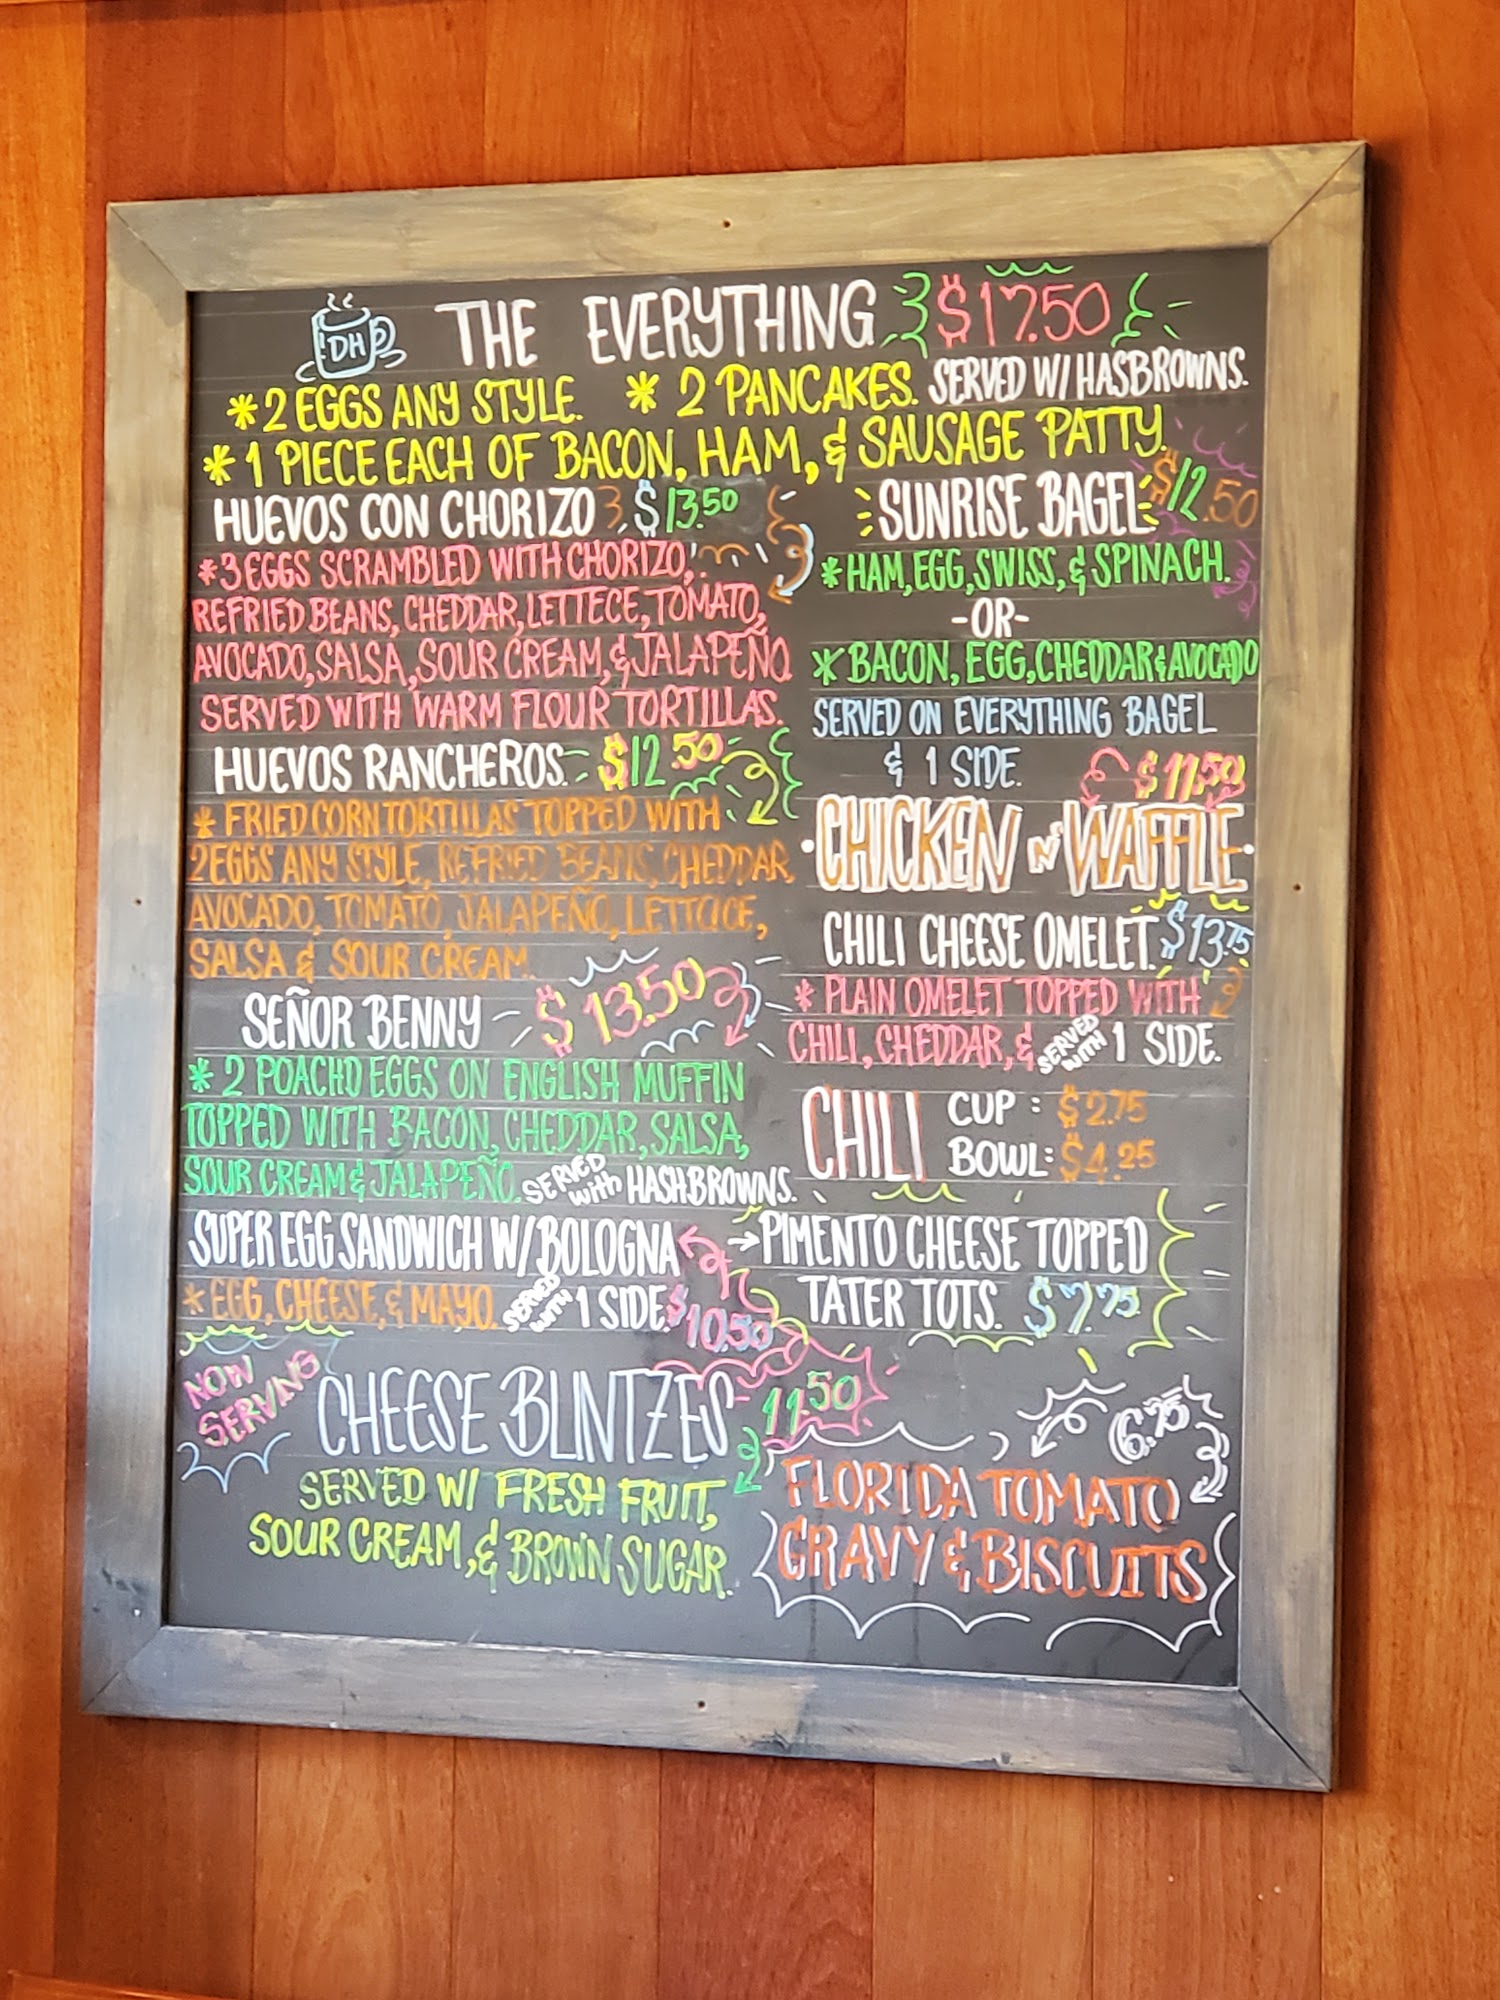 DH
THE EVERYTHING $17.50
*2 EGGS ANY STYLE. * 2 PANCAKES. SERVED W/ HASBROWNS.
*1 PIECE EACH OF BACON, HAM, & SAUSAGE PATTY.
HUEVOS CON CHORIZO $13.50
*3 EGGS SCRAMBLED WITH CHORIZO,
REFRIED BEANS, CHEDDAR, LETTECE, TOMATO,
AVOCADO, SALSA, SOUR CREAM, & JALAPEÑO
SERVED WITH WARM FLOUR TORTILLAS.
HUEVOS RANCHEROS. $12.50
* FRIED CORN TORTILLAS TOPPED WITH
2 EGGS ANY STYLE, REFRIED BEANS, CHEDDAR,
AVOCADO, TOMATO, JALAPEÑO, LETTUCE,
SALSA & SOUR CREAM.
SEÑOR BENNY $13.50
* 2 POACHD EGGS ON ENGLISH MUFFIN
TOPPED WITH BACON, CHEDDAR, SALSA,
SOUR CREAM & JALAPEÑO. SERVED with HASHBROWNS.
SUPER EGG SANDWICH W/ BOLOGNA
* EGG, CHEESE, & MAYO. SERVED WITH 1 SIDE. $10.50
SUNRISE BAGEL $12.50
*HAM, EGG, SWISS, & SPINACH.
-OR-
*BACON, EGG, CHEDDAR & AVOCADO
SERVED ON EVERYTHING BAGEL
& 1 SIDE.
$11.50
CHICKEN N' WAFFLE
CHILI CHEESE OMELET. $13.75
* PLAIN OMELET TOPPED WITH
CHILI, CHEDDAR, & SERVED WITH 1 SIDE.
CHILI CUP: $2.75
BOWL: $4.25
PIMENTO CHEESE TOPPED
TATER TOTS. $7.75
NOW
SERVING
CHEESE BLINTZES 11.50
SERVED W/ FRESH FRUIT,
SOUR CREAM, & BROWN SUGAR.
6.75
FLORIDA TOMATO
GRAVY & BISCUITS